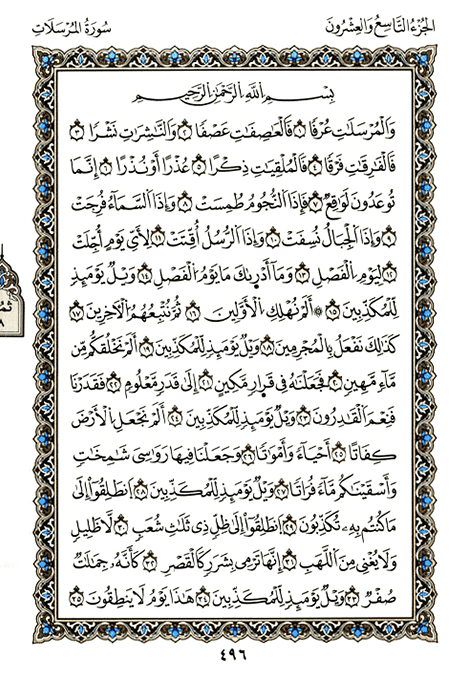 الجُزْءُ التَّاسِعُ وَالعِشْرُونَ
سُورَةُ المُرْسَلَاتِ
بِسْمِ اللَّهِ الرَّحْمَٰنِ الرَّحِيمِ
وَالْمُرْسَلَاتِ عُرْفًا ١ فَالْعَاصِفَاتِ عَصْفًا ٢ وَالنَّاشِرَاتِ نَشْرًا ٣
فَالْفَارِقَاتِ فَرْقًا ٤ فَالْمُلْقِيَاتِ ذِكْرًا ٥ عُذْرًا أَوْ نُذُرًا ٦ إِنَّمَا
تُوعَدُونَ لَوَاقِعٌ ٧ فَإِذَا النُّجُومُ طُمِسَتْ ٨ وَإِذَا السَّمَاءُ فُرِجَتْ
٩ وَإِذَا الْجِبَالُ نُسِفَتْ ١٠ وَإِذَا الرُّسُلُ أُقِّتَتْ ١١ لِأَيِّ يَوْمٍ أُجِّلَتْ
١٢ لِيَوْمِ الْفَصْلِ ١٣ وَمَا أَدْرَىٰكَ مَا يَوْمُ الْفَصْلِ ١٤ وَيْلٌ يَوْمَئِذٍ
لِلْمُكَذِّبِينَ ١٥ ۞ أَلَمْ نُهْلِكِ الْأَوَّلِينَ ١٦ ثُمَّ نُتْبِعُهُمُ الْآخِرِينَ ١٧
كَذَٰلِكَ نَفْعَلُ بِالْمُجْرِمِينَ ١٨ وَيْلٌ يَوْمَئِذٍ لِلْمُكَذِّبِينَ ١٩ أَلَمْ نَخْلُقكُّم مِّن
مَّاءٍ مَّهِينٍ ٢٠ فَجَعَلْنَاهُ فِي قَرَارٍ مَكِينٍ ٢١ إِلَىٰ قَدَرٍ مَعْلُومٍ ٢٢ فَقَدَرْنَا
فَنِعْمَ الْقَادِرُونَ ٢٣ وَيْلٌ يَوْمَئِذٍ لِلْمُكَذِّبِينَ ٢٤ أَلَمْ نَجْعَلِ الْأَرْضَ
كِفَاتًا ٢٥ أَحْيَاءً وَأَمْوَاتًا ٢٦ وَجَعَلْنَا فِيهَا رَوَاسِيَ شَامِخَاتٍ
وَأَسْقَيْنَاكُم مَّاءً فُرَاتًا ٢٧ وَيْلٌ يَوْمَئِذٍ لِلْمُكَذِّبِينَ ٢٨ انطَلِقُوا إِلَىٰ
مَا كُنتُم بِهِ تُكَذِّبُونَ ٢٩ انطَلِقُوا إِلَىٰ ظِلٍّ ذِي ثَلَاثِ شُعَبٍ ٣٠ لَّا ظَلِيلٍ
وَلَا يُغْنِي مِنَ اللَّهَبِ ٣١ إِنَّهَا تَرْمِي بِشَرَرٍ كَالْقَصْرِ ٣٢ كَأَنَّهُ جِمَالَتٌ
صُفْرٌ ٣٣ وَيْلٌ يَوْمَئِذٍ لِلْمُكَذِّبِينَ ٣٤ هَٰذَا يَوْمُ لَا يَنطِقُونَ ٣٥
٤٩٦